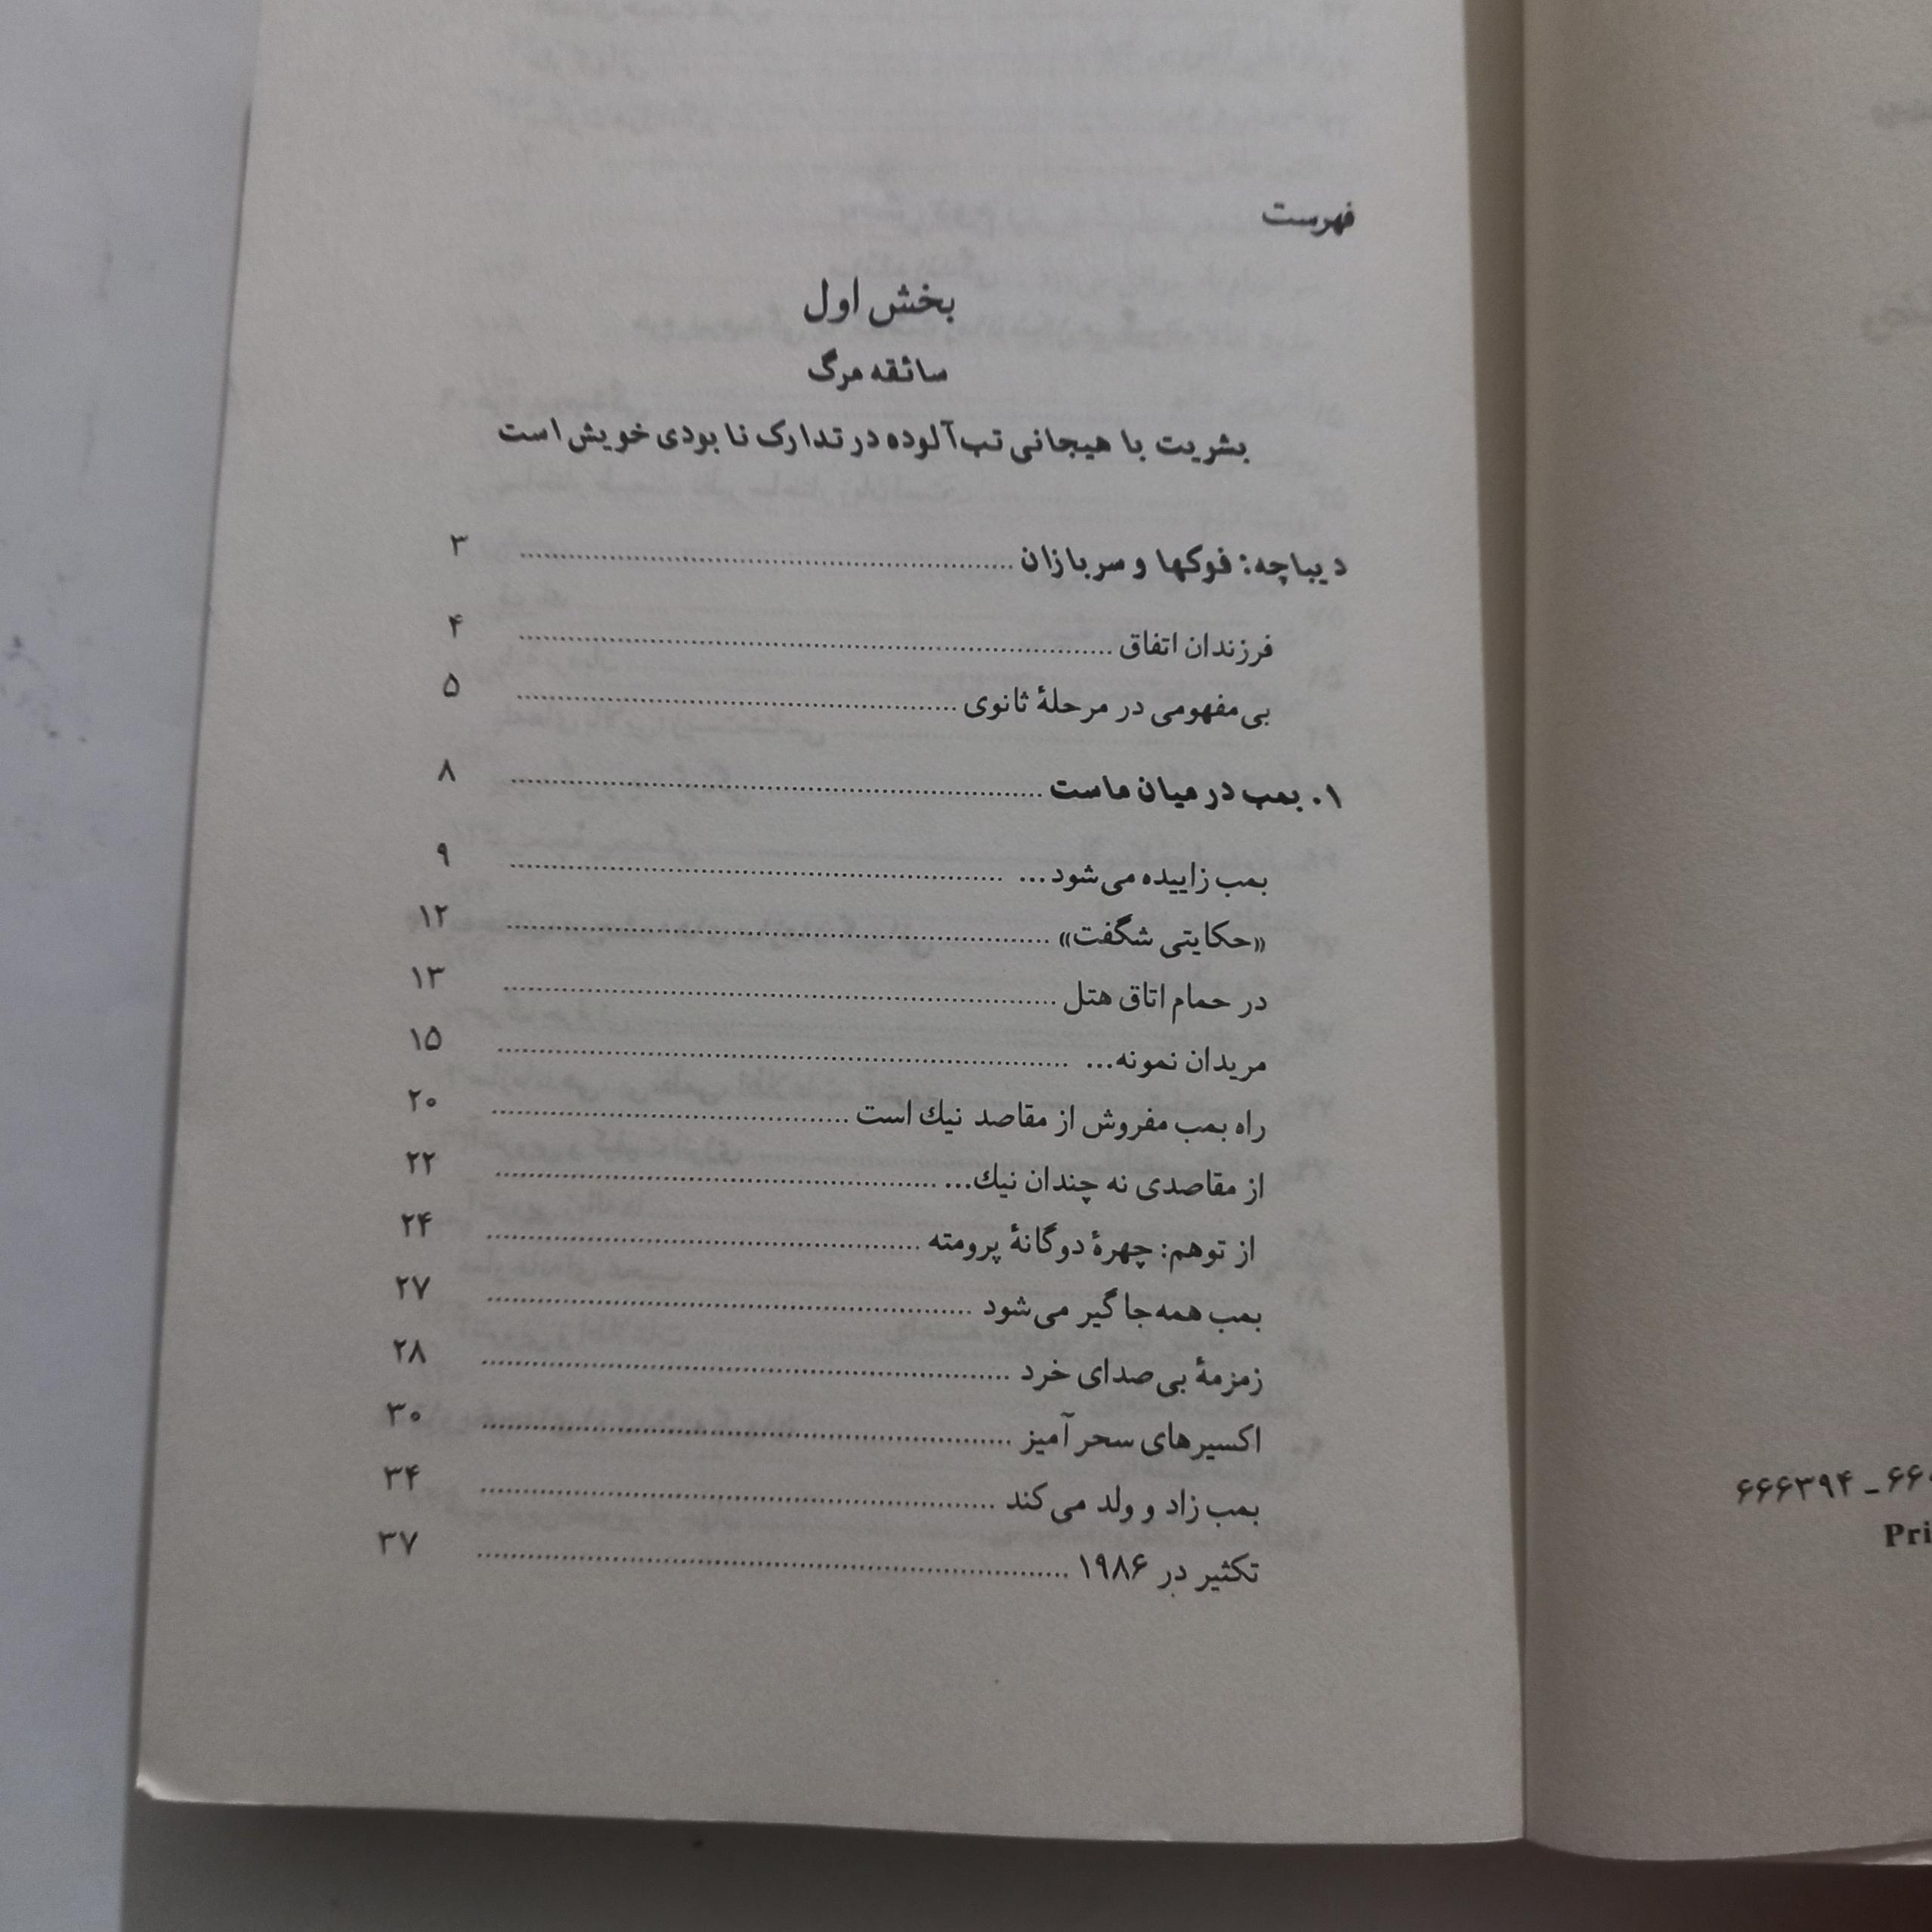 فهرست
بخش اول
سائقه مرگ
بشریت با هیجانی تب‌آلوده در تدارک نابودی خویش است
دیباچه: فوکها و سربازان ........ ۳
فرزندان اتفاق ........ ۴
بی‌مفهومی در مرحلهٔ ثانوی ........ ۵
۱. بمب در میان ماست ........ ۸
بمب زاییده می‌شود... ........ ۹
«حکایتی شگفت» ........ ۱۲
در حمام اتاق هتل ........ ۱۳
مریدان نمونه... ........ ۱۵
راه بمب مفروش از مقاصد نیك است ........ ۲۰
از مقاصدی نه چندان نیك... ........ ۲۲
از توهم: چهرهٔ دوگانهٔ پرومته ........ ۲۴
بمب همه‌جاگیر می‌شود ........ ۲۷
زمزمهٔ بی‌صدای خرد ........ ۲۸
اکسیرهای سحرآمیز ........ ۳۰
بمب زاد و ولد می‌کند ........ ۳۴
تکثیر در ۱۹۸۶ ........ ۳۷
۶۶۶۳۹۴ ـ ۶۶
Pri